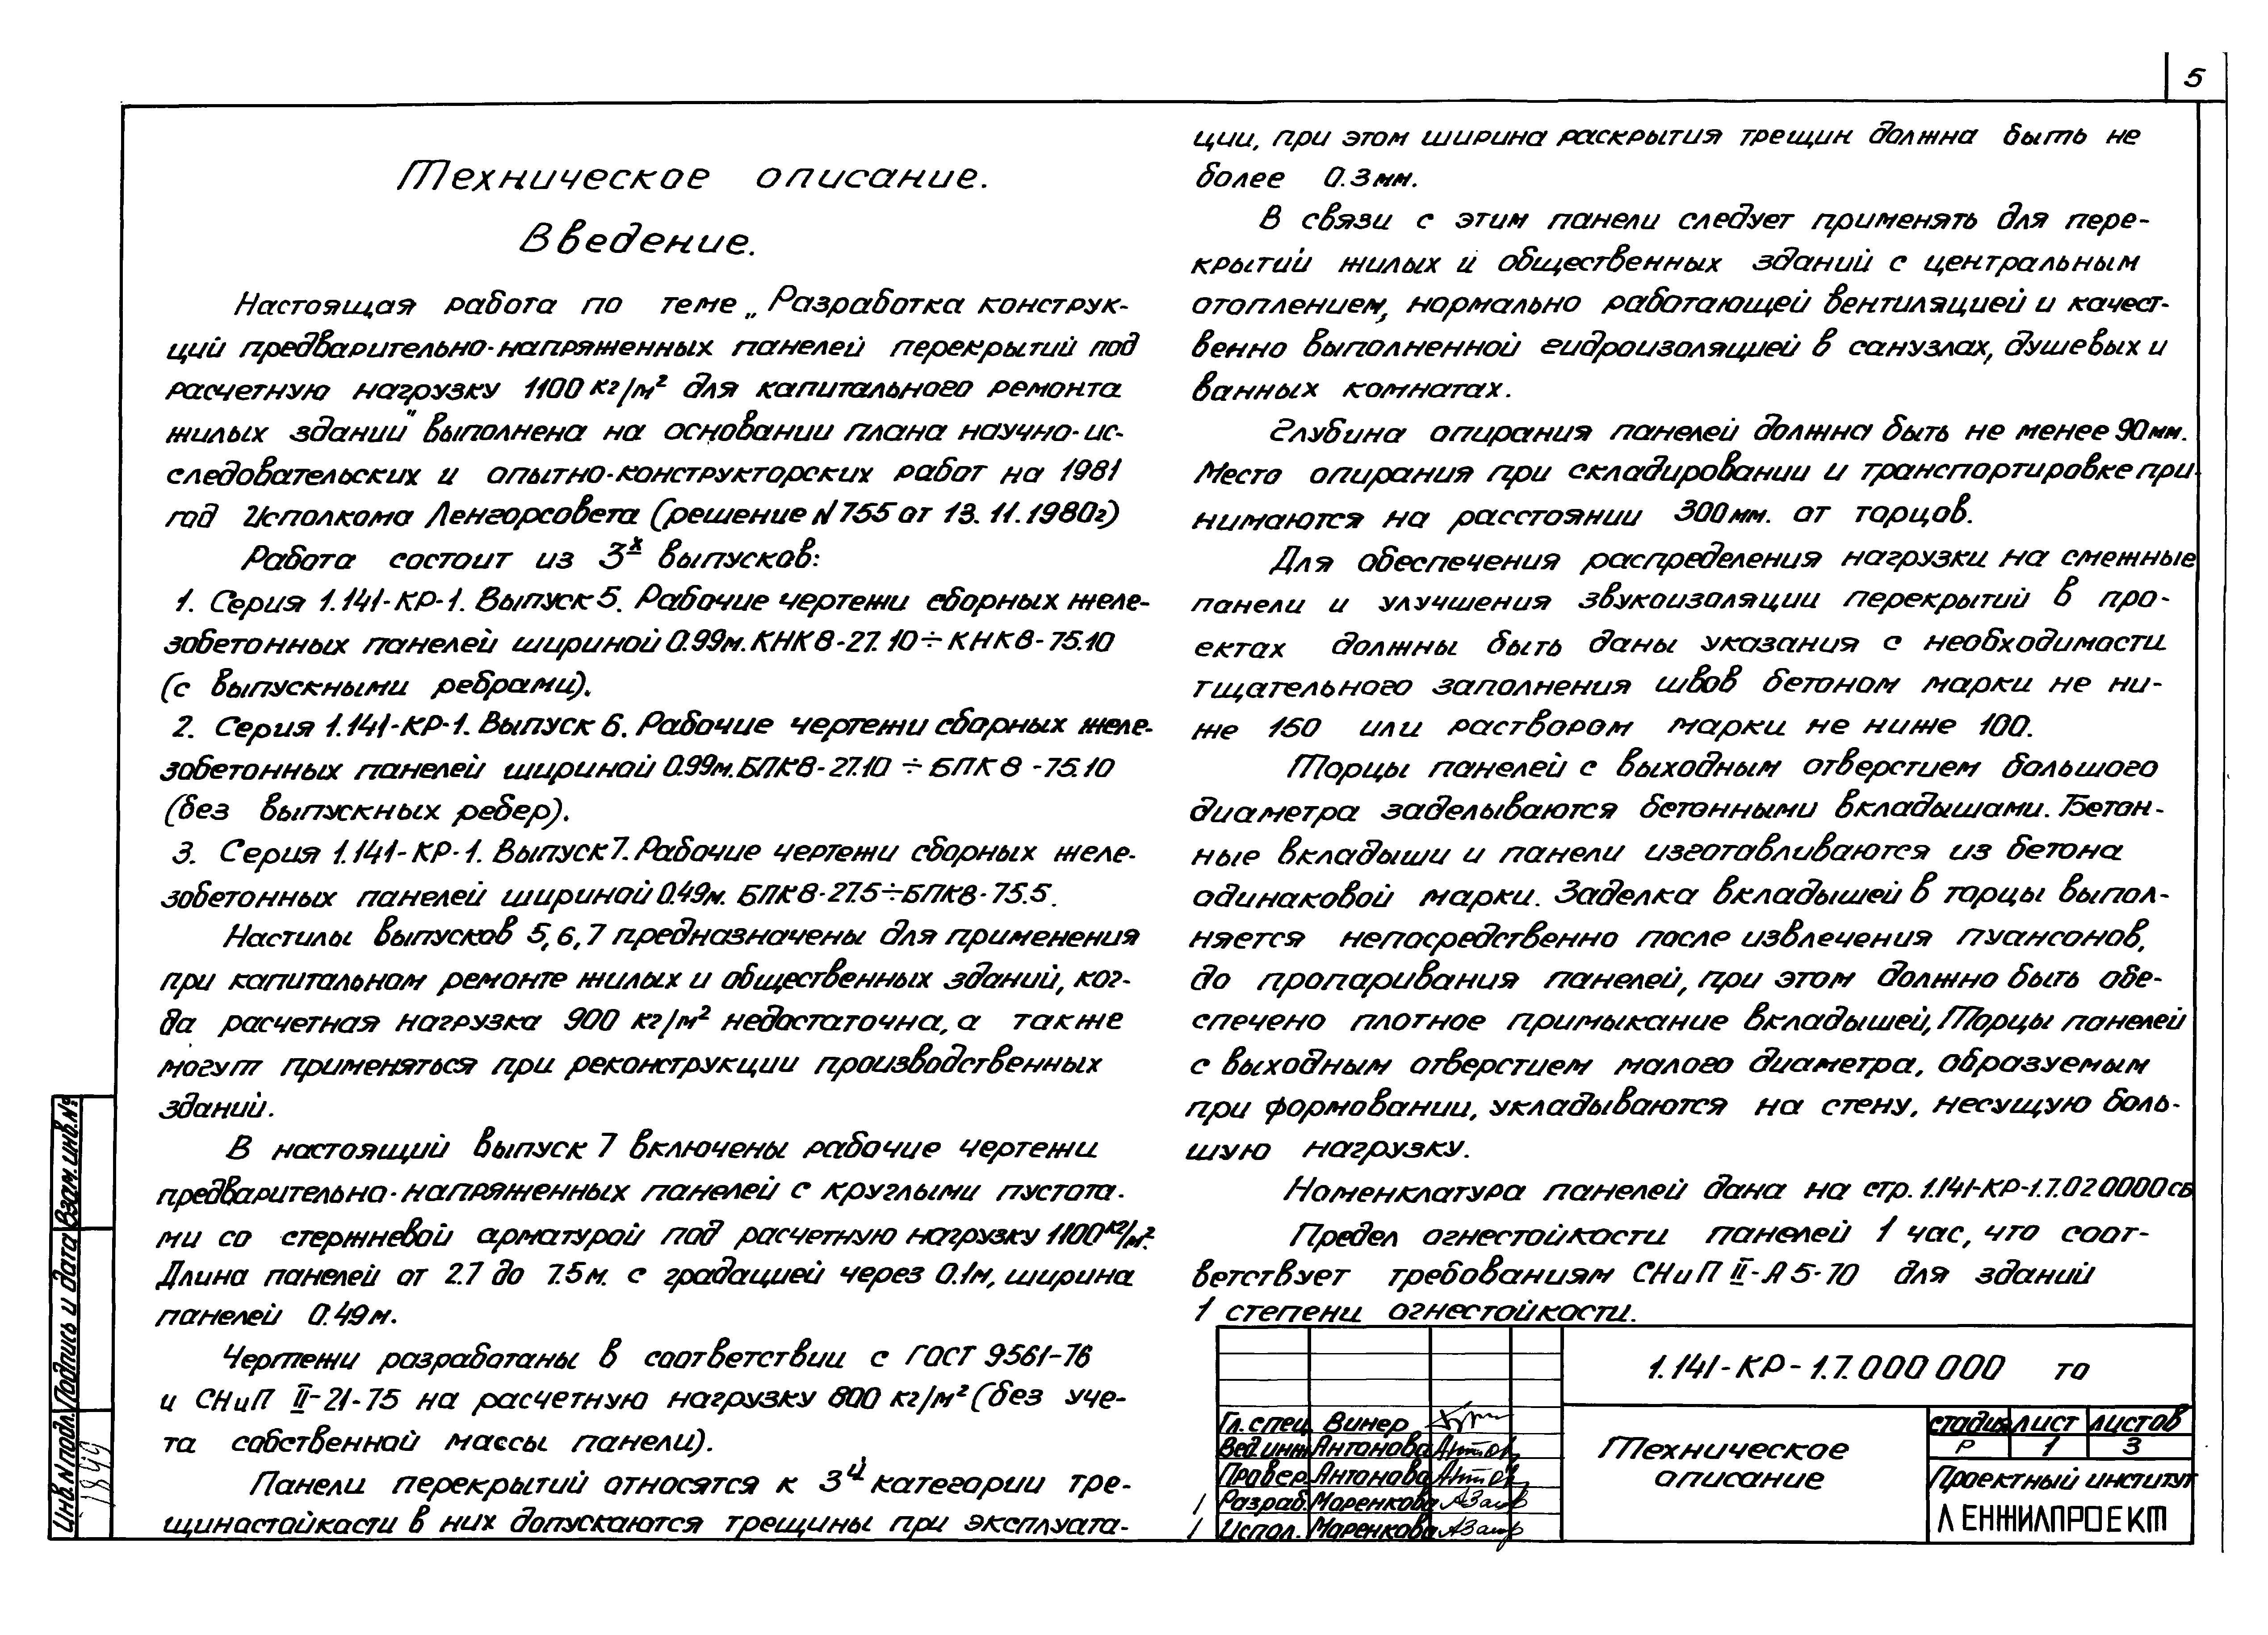 5
Техническое описание.
Введение.
Настоящая работа по теме „Разработка конструк-
ций предварительно-напряженных панелей перекрытий под
расчетную нагрузку 1100 кг/м² для капитального ремонта
жилых зданий" выполнена на основании плана научно-ис-
следовательских и опытно-конструкторских работ на 1981
год Исполкома Ленгорсовета (решение N 755 от 13.11.1980г)
Работа состоит из 3х выпусков:
1. Серия 1.141-КР-1. Выпуск 5. Рабочие чертежи сборных желе-
зобетонных панелей шириной 0.99м. КНК8-27.10÷КНК8-75.10
(с выпускными ребрами).
2. Серия 1.141-КР-1. Выпуск 6. Рабочие чертежи сборных желе-
зобетонных панелей шириной 0.99м. БПК8-27.10 ÷ БПК8-75.10
(без выпускных ребер).
3. Серия 1.141-КР-1. Выпуск 7. Рабочие чертежи сборных желе-
зобетонных панелей шириной 0.49м. БПК8-27.5÷БПК8-75.5.
Настилы выпусков 5,6,7 предназначены для применения
при капитальном ремонте жилых и общественных зданий, ког-
да расчетная нагрузка 900 кг/м² недостаточна, а также
могут применяться при реконструкции производственных
зданий.
В настоящий выпуск 7 включены рабочие чертежи
предварительно-напряженных панелей с круглыми пустота-
ми со стержневой арматурой под расчетную нагрузку 1100 кг/м².
Длина панелей от 2.7 до 7.5м. с градацией через 0.1м, ширина
панелей 0.49м.
Чертежи разработаны в соответствии с ГОСТ 9561-76
и СНиП II-21-75 на расчетную нагрузку 800 кг/м² (без уче-
та собственной массы панели).
Панели перекрытий относятся к 3й категории тре-
щиностойкости в них допускаются трещины при эксплуата-
ции, при этом ширина раскрытия трещин должна быть не
более 0.3мм.
В связи с этим панели следует применять для пере-
крытий жилых и общественных зданий с центральным
отоплением, нормально работающей вентиляцией и качест-
венно выполненной гидроизоляцией в санузлах, душевых и
ванных комнатах.
Глубина опирания панелей должна быть не менее 90мм.
Место опирания при складировании и транспортировке при-
нимаются на расстоянии 300мм. от торцов.
Для обеспечения распределения нагрузки на смежные
панели и улучшения звукоизоляции перекрытий в про-
ектах должны быть даны указания с необходимости
тщательного заполнения швов бетоном марки не ни-
же 150 или раствором марки не ниже 100.
Торцы панелей с выходным отверстием большого
диаметра заделываются бетонными вкладышами. Бетон-
ные вкладыши и панели изготавливаются из бетона
одинаковой марки. Заделка вкладышей в торцы выпол-
няется непосредственно после извлечения пуансонов,
до пропаривания панелей, при этом должно быть обе-
спечено плотное примыкание вкладышей, Торцы панелей
с выходным отверстием малого диаметра, образуемым
при формовании, укладываются на стену, несущую боль-
шую нагрузку.
Номенклатура панелей дана на стр. 1.141-КР-1.7.02 0000СБ
Предел огнестойкости панелей 1 час, что соот-
ветствует требованиям СНиП II-А 5-70 для зданий
1 степени огнестойкости.
1.141-КР-1.7.000 000 ТО
Гл.спец. Винер
Вед.инж. Антонова
Провер. Антонова
Разраб. Маренкова
Испол. Маренкова
Техническое
описание
стадия лист листов
Р 1 3
Проектный институт
ЛЕНЖИЛПРОЕКТ
Взам.инв.№
Подпись и дата
Инв.N подл.
1849